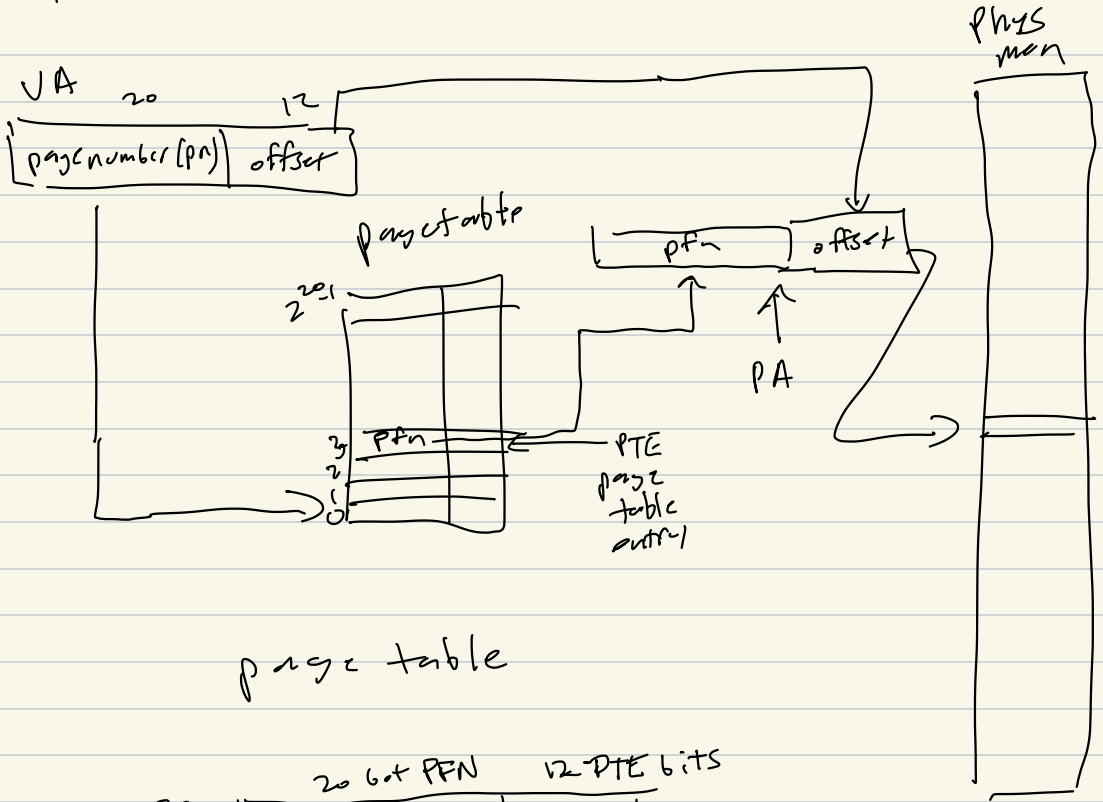 Phys
mem
VA
20 12
pagenumber (pn) offset
pagetable
pfn offset
2^20-1
PA
3 pfn
PTE
2
page
1
table
0
entry
page table
20 bit PFN 12 PTE bits